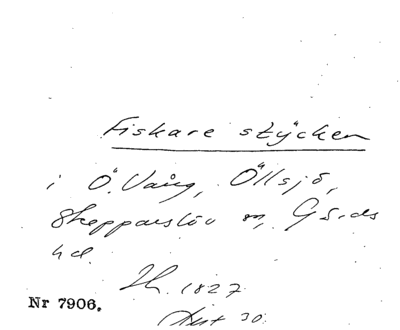 Fiskare stycken
i Ö. Vång, Öllsjö,
Skepparslöv m, Gärds
hd.
1827
Nr 7906.
30.